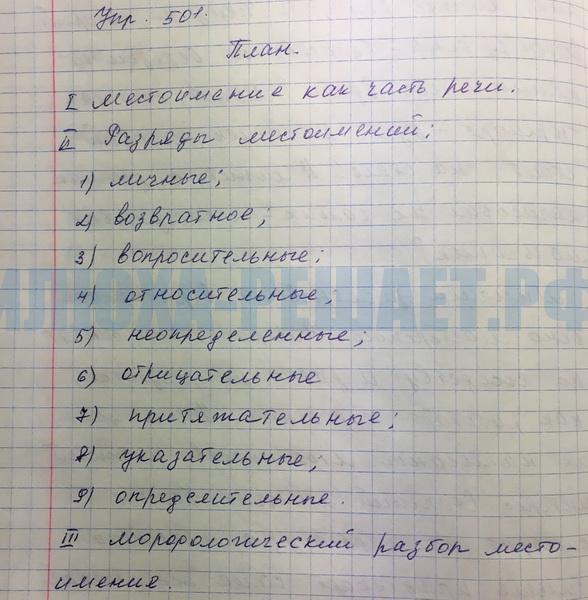 Упр. 501.
План.
I местоимение как часть речи.
II Разряды местоимений;
1) личные;
2) возвратное;
3) вопросительные;
ИЛЮХА-РЕШАЕТ.РФ
4) относительные;
5) неопределенные;
6) отрицательные
7) притяжательные;
8) указательные;
9) определительные.
III морфологический разбор место-
имение.